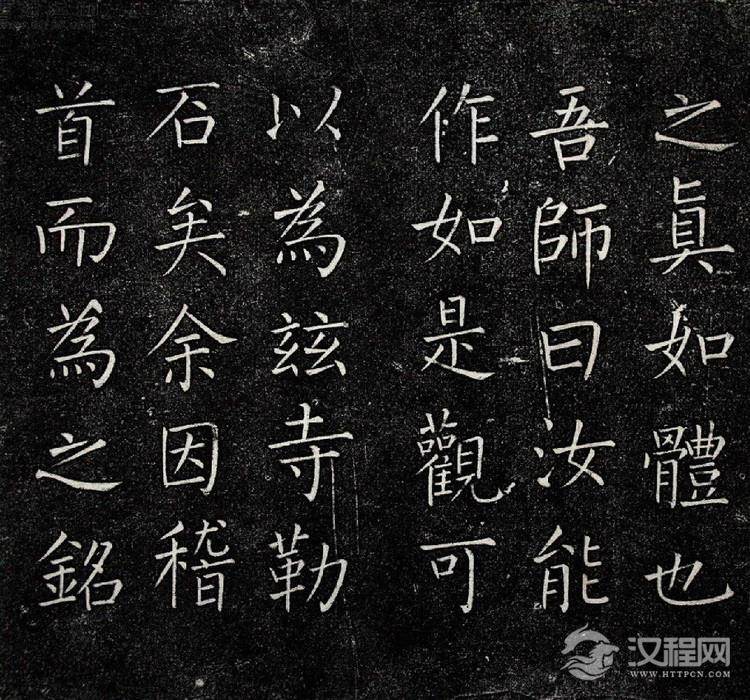 之真如體也
吾師曰汝能
作如是觀可
以為茲寺勒
石矣余因稽
首而為之銘
汉程网
WWW.HTTPCN.COM